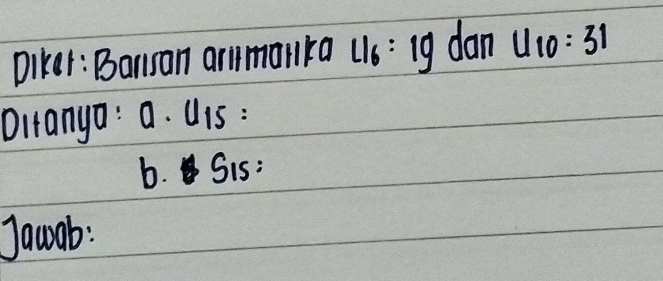 Diket: Barisan aritmatika U6 : 19 dan U10 : 31
Ditanya: a. U15 :
b. S15 :
Jawab: